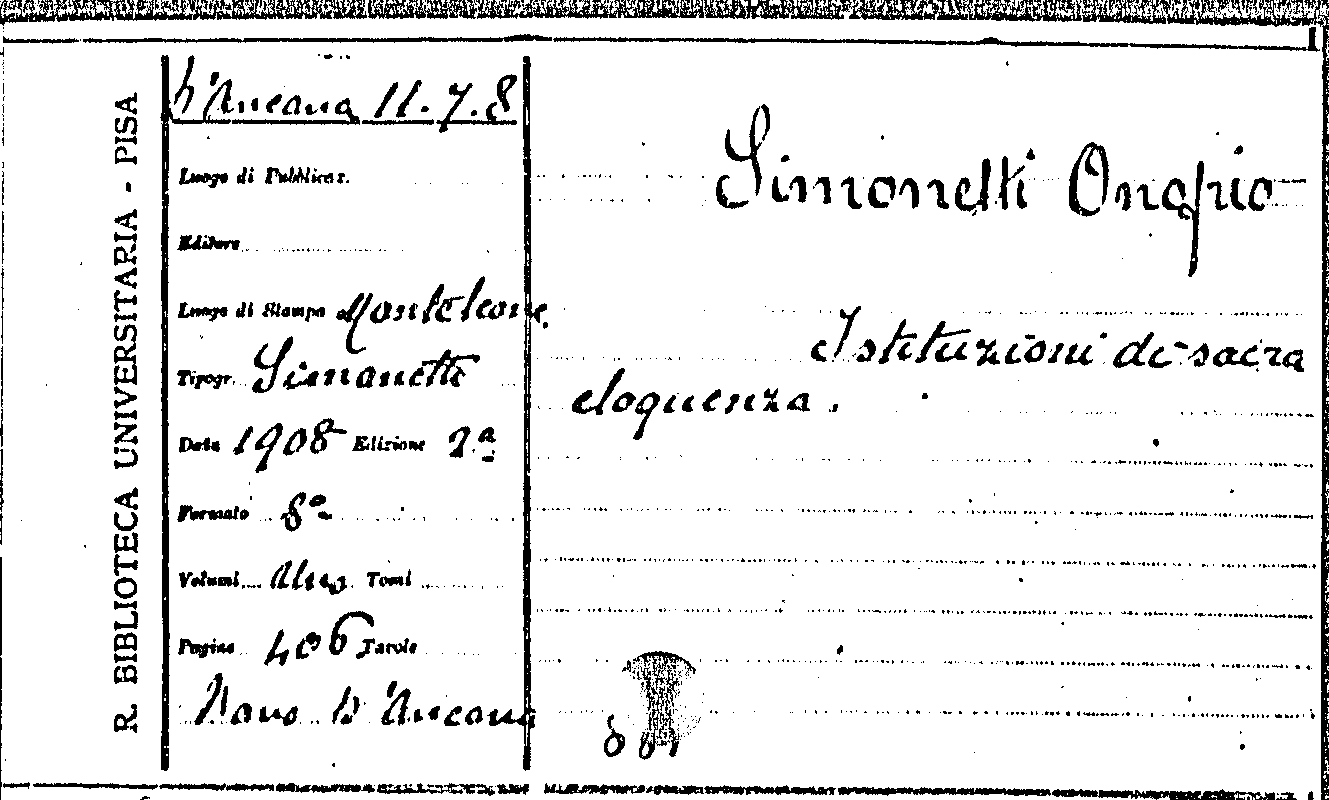 R. BIBLIOTECA UNIVERSITARIA - PISA
D'Ancona 11.7.8
Luogo di Pubblicaz.
Editore
Luogo di Stampa Monteleone
Tipogr. Simonetti
Data 1908 Edizione 2ª
Formato 8º
Volumi Uno Tomi
Pagine 406 Tavole
Dono D'Ancona
Simonetti Onofrio
Istituzioni di sacra
eloquenza.